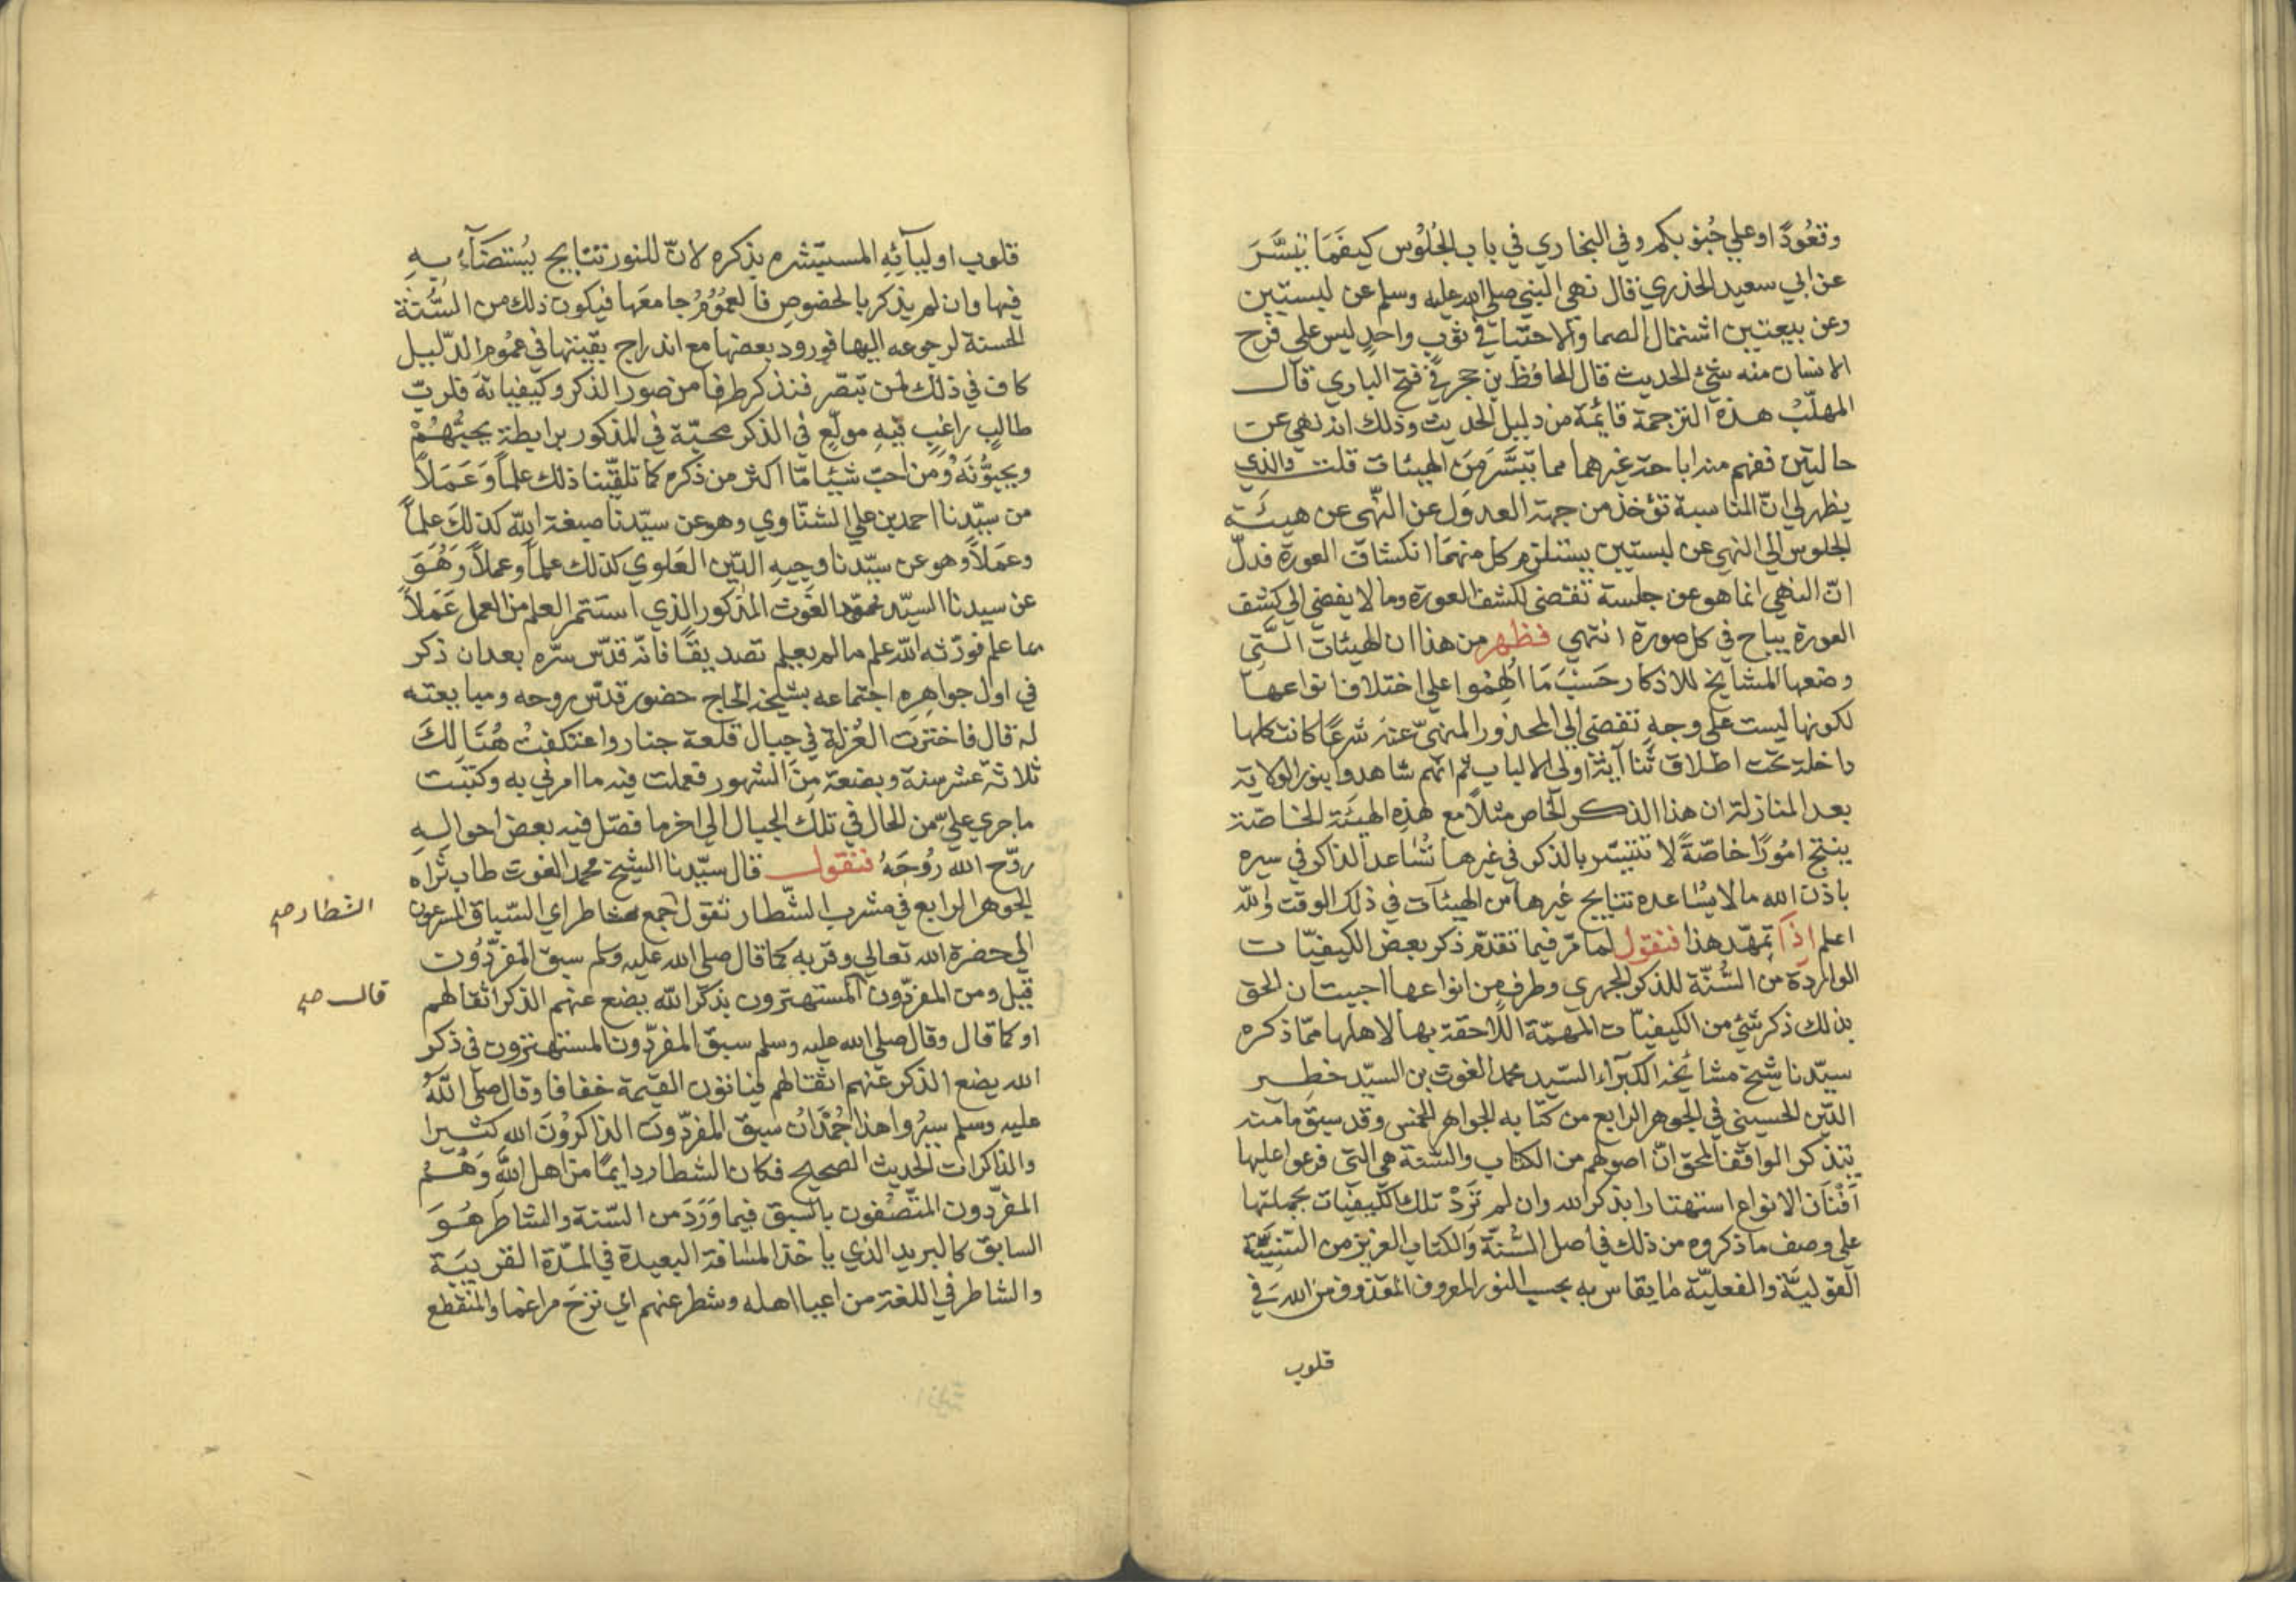 وقعُودًا وعلي جُنوبكم وفي البخاري في باب الجُلوُس كيفَمَا تيسَّرَ
عن ابي سعيد الخذري قال نهي النبي صلي الله عليه وسلم عن لبستين
وعن بيعتين اشتمال الصما والاحتبا في ثوب واحدٍ ليس علي فرج
الانسان منه شئ الحديث قال الحافظ بن حجر في فتح الباري قال
المهلّبُ هذه الترجمة قايمة من دليل الحديث وذلك انه نهي عن
حالتين ففهم منه اباحة غيرهما مما تيَسَّرَ مِنَ الهيئات قلت والذي
يظهر لي انّ المناسبة تؤخذ من جهة العدوَل عن النّهي عن هيئة
الجلوس الي النهي عن لبستين يستلزم كل منهمَا انكشافَ العورة فدلّ
انّ النهي انما هو عن جلسة تفضي لكشف العورة وما لا يفضي الي كشف
العورة يباح في كل صورة انتهي فظهر من هذا ان الهيئات الَّتِي
وضعها المشايخ للاذكار حَسَبَ مَا اُلهِمُوا علي اختلاف انواعها
لكونها ليست علي وجهٍ تفضي الي المحذور المنهيّ عنه شرعًا كانت كلها
داخلة تحت اطلاق ثنا آية اولي الالباب ثم انهم شاهدوا بنور الولاية
بعد المنازلة ان هذا الذكر الخاص مثلًا مع هذِهِ الهيئة الخاصّة
ينتج امُورًا خاصّةً لا تتيسّر بالذكر في غيرها تُسَاعد الذاكر في سيره
باذن الله ما لا يُسَاعده نتايج غيرها من الهيئآت في ذلك الوقت والله
اعلم اذَا تمهّد هذا فنقول لما مرّ فيما تقدّم ذكر بعض الكيفيّات
الواردة من السُّنّة للذكر الجهري وطرفٍ من انواعها احببت ان الحق
بذلك ذكر شئ من الكيفيّات المهمّة اللّاحقة بها لاهلها ممّا ذكره
سيّدنا شيخ مشائخنا الكبرآء السّيد محمد الغوث بن السيّد خطير
الدّين الحسيني في الجوهر الرابع من كتابه الجواهر الخمس وقد سبق ما منه
يتذكر الواقف المحق انّ اصولهم من الكتاب والسّنة هي التي فرعوا عليها
اَفْنَانَ الانواع استهتارا بذكر الله وان لم تَرِدْ تلك الكيفيّات بجملتها
علي وصف ما ذكروه من ذلك في اصل السُّنّة والكتاب العزيز من السّنِيَّة
القوليَّة والفعليّة ما يقاس به بحسب النور المعروف المقذوف من الله في
قلوب
قلوب اوليآئِهِ المستهتَره بذكره لانّ للنور نتايج يُستضَآءُ بِهِ
فيها وان لم يذكر بالخصوصِ فالعمُوُمُ جامعَها فيكون ذلك من السُّنة
الحسنة لرجوعه اليها فورود بعضها مع اندراج بقيتها في عمُوم الدّليل
كاف في ذلك لمن تبصّر فنذكر طرفا من صور الذكر وكيفياته فلربّ
طالبٍ راغبٍ فيهِ مولّعٍ في الذكر محبّة في المذكور برابطة يحبُّهُمْ
ويحبُّونَهُ وَمَن احبّ شيئا مّا اكثر من ذكره كما تلقّينا ذلك علماً وَعَمَلاً
من سيّدنا احمد بن علي الشنّاوي وهو عن سيّدنا صبغة الله كذلكَ علماً
وعَمَلاً وهو عن سيّدنا وجيهِ الدّين العَلوي كذلك علماً وعملاً وَهُوَ
عن سيدنا السيّد محمد الغَوث المذكور الذي استثمر العلم من العمل عَمَلاً
بما علم فورّثه الله علم ما لم يعلم تصديقًا فانّه قدّس سرّه بعد ان ذكر
في اول جواهِرِهِ اجتماعه بشيخه الحاج حضور قدّس روحه ومبايعته
له قال فاخترت العُزلة في جبال قلعة جنار واعتكفتُ هُنَالِكَ
ثلاثة عشر سنة وبضعة مِنَ الشهور فعملت فيه ما امرني به وكتبت
ما جري عليّ من الحال في تلك الجبال الي اخر ما فصّل فيه بعض احوالِهِ
روّح الله رُوحَهُ فنقول قال سيّدنا الشيخ محمد الغوث طاب ثراه
الجوهر الرابع في مشرب الشّطار تقول جمع شاطر اي السّباق المسرعون
الي حضرة الله تعالي وقربه كما قال صلي الله عليه وسلم سبق المُفرّدُون
قيل ومن المفرّدون المستهترون بذكر الله يضع عنهم الذكر اثقالهم
او كما قال وقال صلي الله عليه وسلم سبق المفرّدون المستهترون في ذكر
الله يضع الذكر عنهم اثقالهم فيأتون القيمة خفافا وقال صلّي اللّهُ
عليه وسلم سيُروا هذا جُمْدَانُ سبق المفرّدون الذاكرُوْنَ الله كثيرا
والذاكرات الحديث الصحيح فكان الشطار دايمًا من اهل الله وَهُمُ
المفرّدون المتّصفون بالسبق فيما وَرَدَ من السّنة والشاطر هُوَ
السابق كالبريد الذي ياخذ المسَافة البعيدة في المدّة القريبَة
والشاطر في اللغة من اعيا اهله وشطر عنهم اي نزحَ مراغما والمنقطع
الشطار صح
قال صح